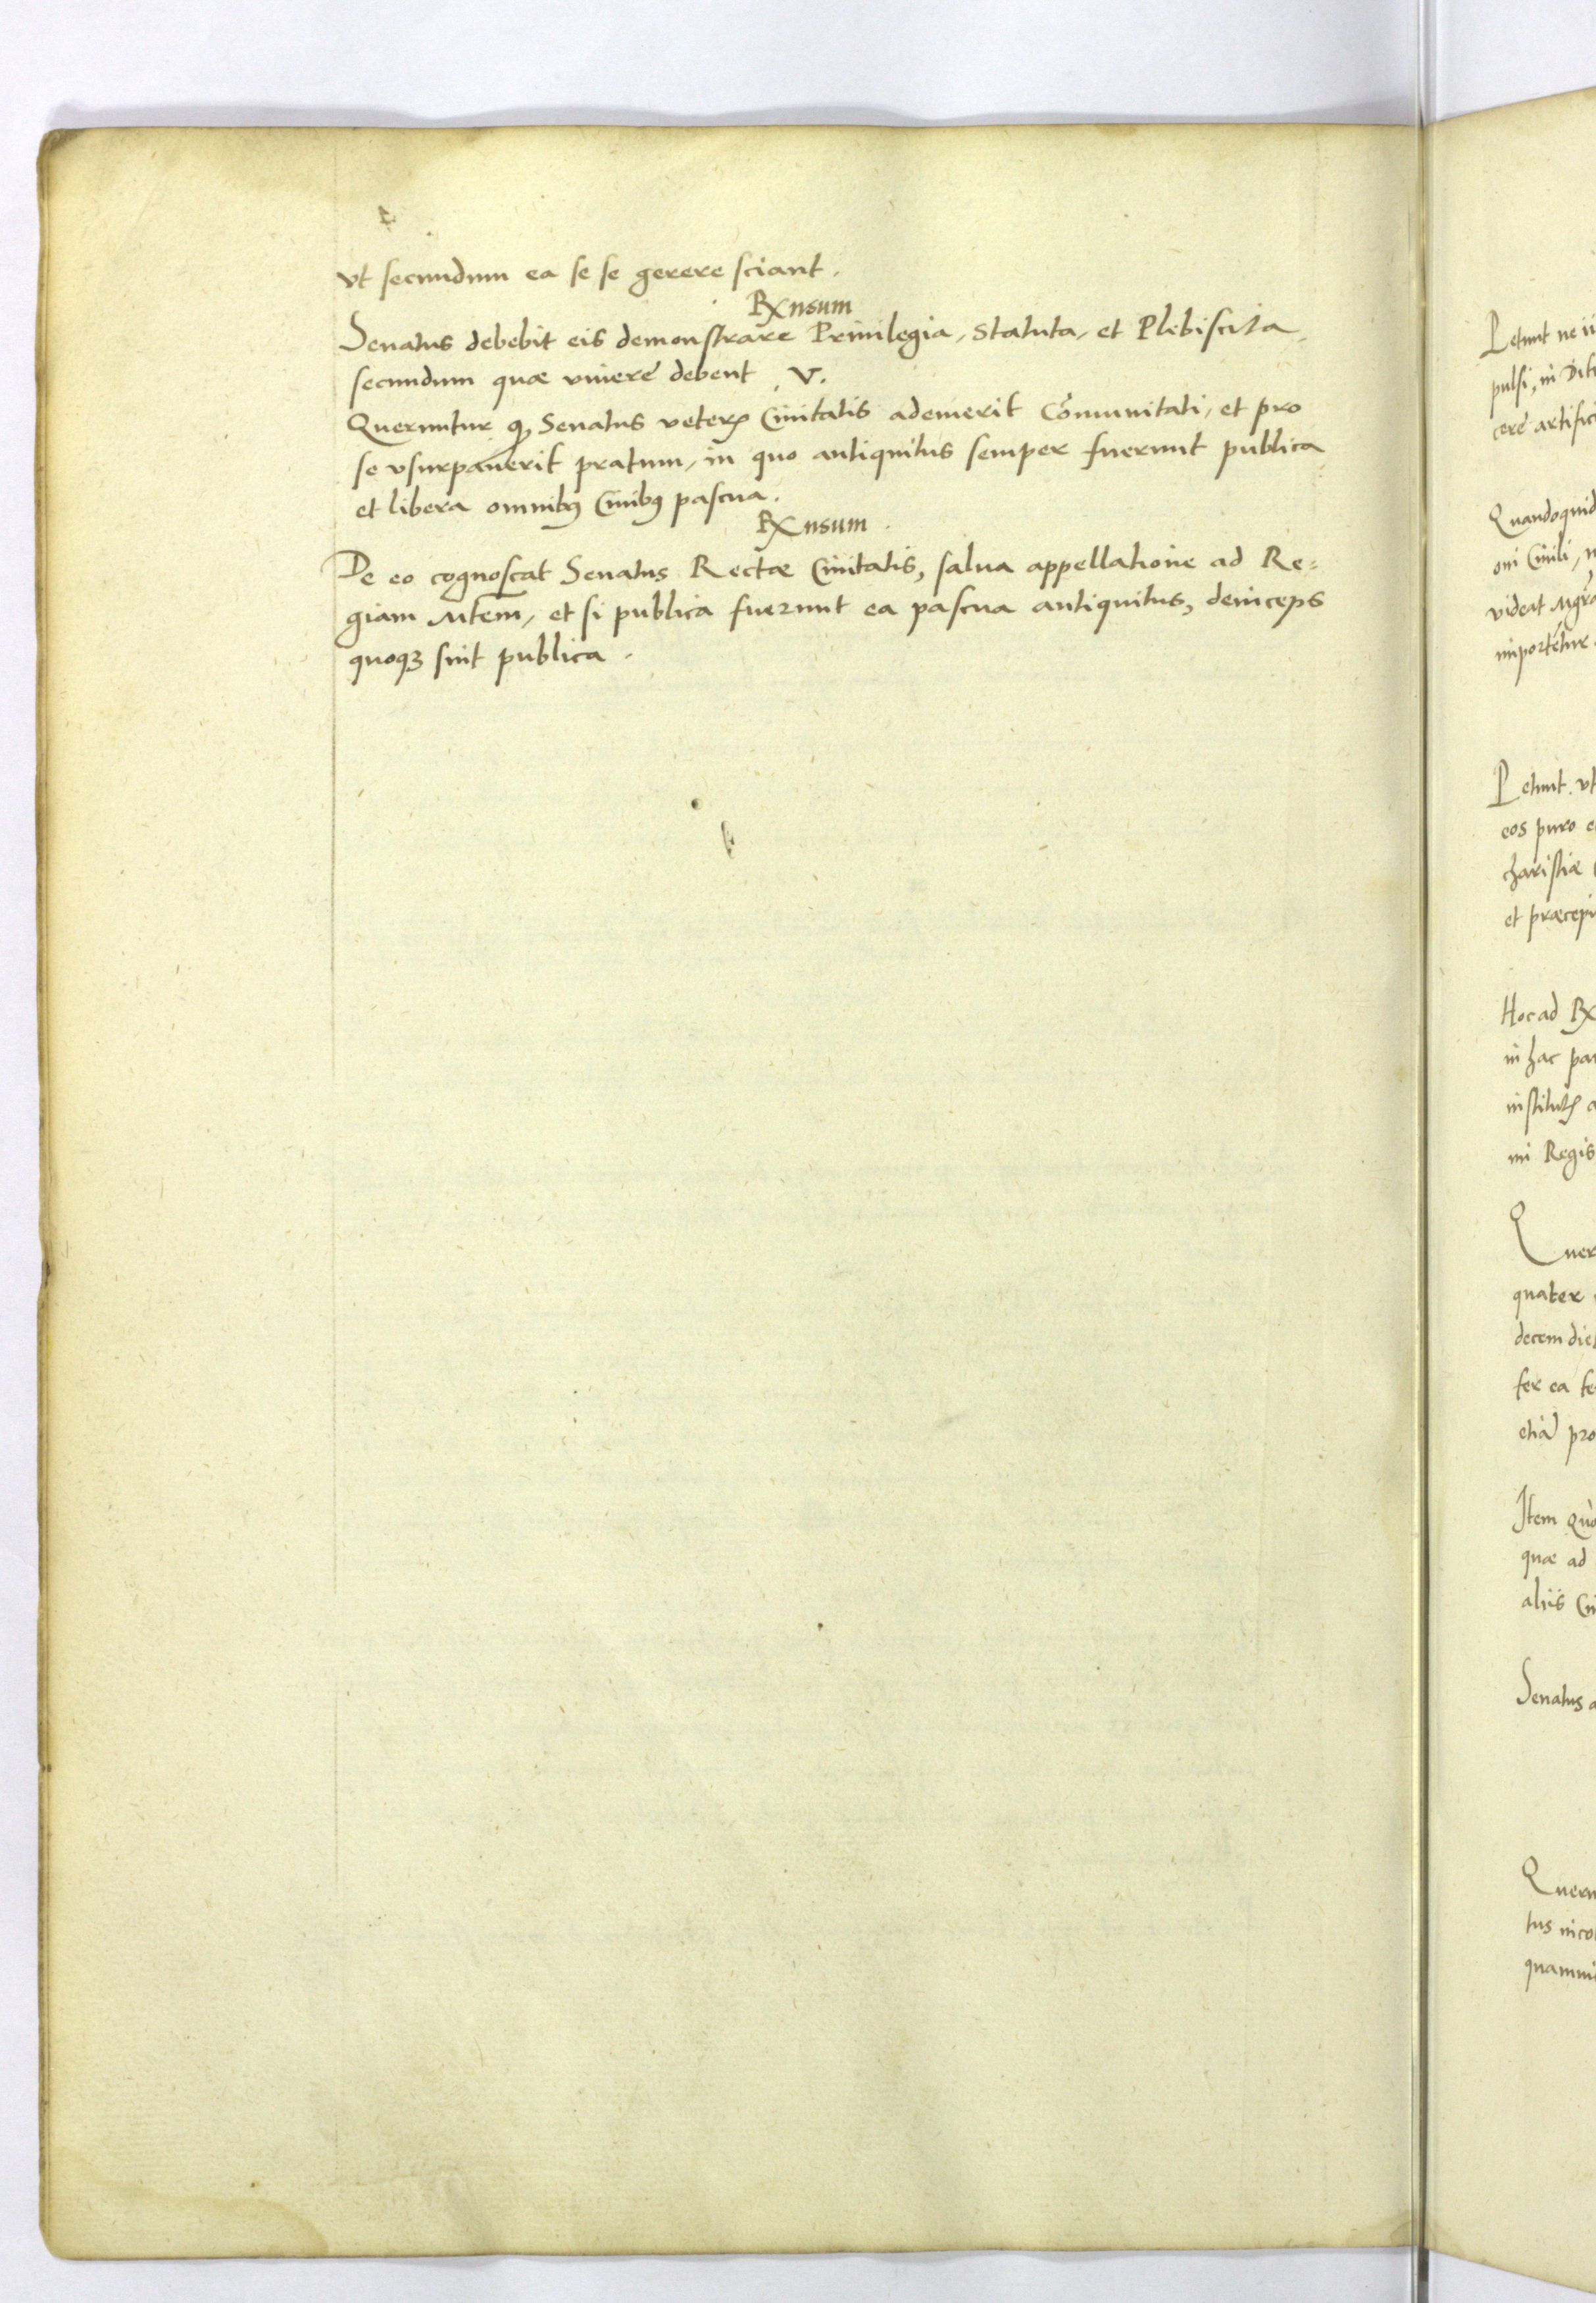 vt secundum ea se se gerere sciant.
Rx nsum
Senatus debebit eis demonstrare Priuilegia, Statuta, et Plebiscita
secundum quæ viuere debent. V.
Queruntur qꝫ Senatus veterꝭ Ciuitatis ademerit Cōmunitati, et pro
se vsurpauerit pratum, in quo antiquitus semper fuerunt publica
et libera omnibꝰ Ciuibꝰ pascua.
Rx nsum.
De eo cognoscat Senatus Rectæ Ciuitatis, salua appellatione ad Re=
giam Mtem, et si publica fuerunt ea pascua antiquitus, deinceps
quoqꝫ sint publica.
Petunt ne ii
pulsi, in Dit
cere artific
Quandoquid
oni Ciuili,
videat
importetur
Petunt. vt
eos puro
charistiæ
et præcep
Hoc ad Rx
in hac par
institutꝭ
mi Regis
Quer
quater
decem die
fer ea
etiã pro
Item quo
quæ ad
aliis Ci
Senatus
Queru
tus inco
quamui